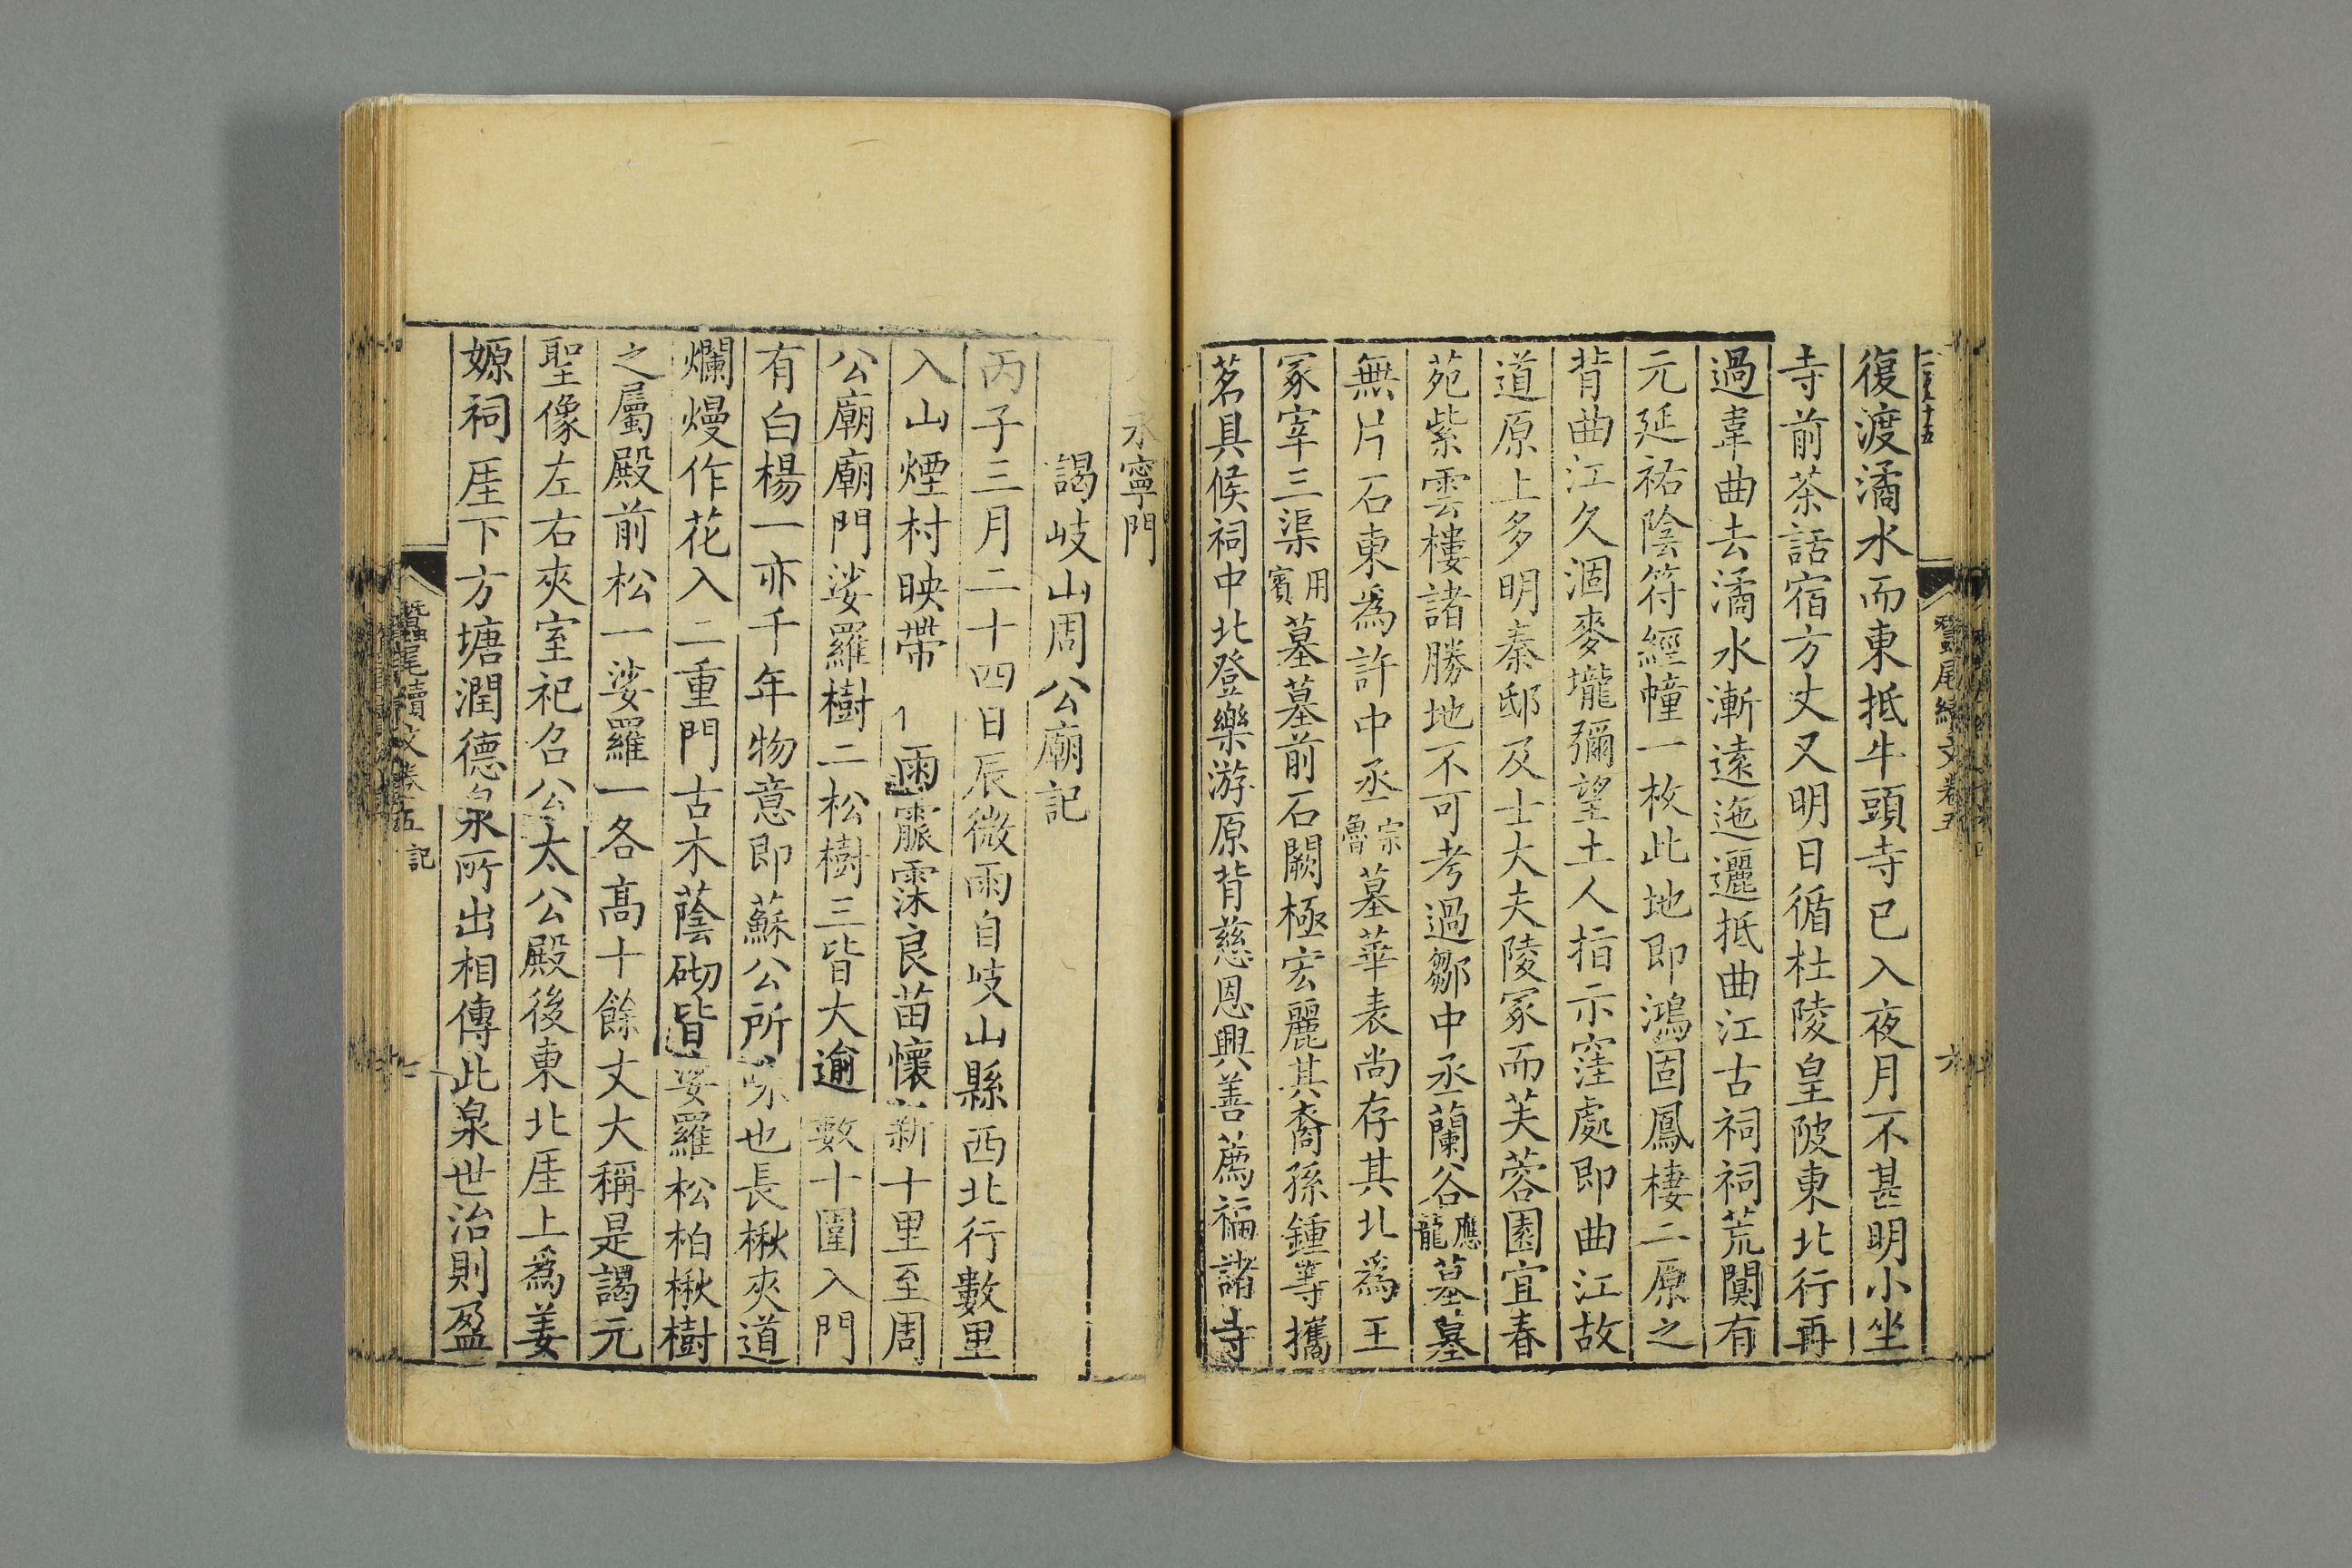 復渡潏水而東抵牛頭寺已入夜月不甚明小坐
寺前茶話宿方丈又明日循杜陵皇陂東北行再
過韋曲去潏水漸遠迤邐抵曲江古祠祠荒闃有
元延祐陰符經幢一枚此地即鴻固鳳棲二原之
背曲江久涸麥壠彌望土人指示窪處即曲江故
道原上多明秦邸及士大夫陵冢而芙蓉園宜春
苑紫雲樓諸勝地不可考過鄒中丞蘭谷應龍墓墓
無片石東為許中丞宗魯墓華表尚存其北為王
冢宰三渠用賓墓墓前石闕極宏麗其裔孫鍾等攜
茗具候祠中北登樂游原背慈恩興善薦福諸寺
蠶尾續文卷五
六
永寧門
謁岐山周公廟記
丙子三月二十四日辰微雨自岐山縣西北行數里
入山煙村映帶雨霢霂良苗懷新十里至周
公廟廟門娑羅樹二松樹三皆大逾數十圍入門
有白楊一亦千年物意即蘇公所咏也長楸夾道
爛熳作花入二重門古木蔭砌皆娑羅松柏楸樹
之屬殿前松一娑羅一各高十餘丈大稱是謁元
聖像左右夾室祀召公太公殿後東北厓上為姜
嫄祠厓下方塘潤德泉所出相傳此泉世治則盈
蠶尾續文卷五 記
七